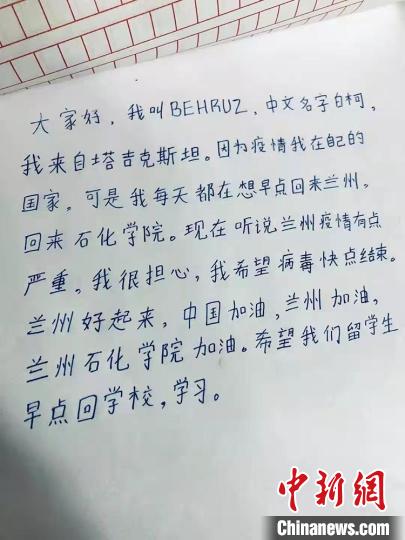 大家好，我叫BEHRUZ，中文名字白柯，
我来自塔吉克斯坦。因为疫情我在自己的
国家，可是我每天都在想早点回来兰州，
回来石化学院。现在听说兰州疫情有点
严重，我很担心，我希望病毒快点结束。
兰州好起来，中国加油，兰州加油，
兰州石化学院加油。希望我们留学生
早点回学校，学习。
中新网
Chinanews.com